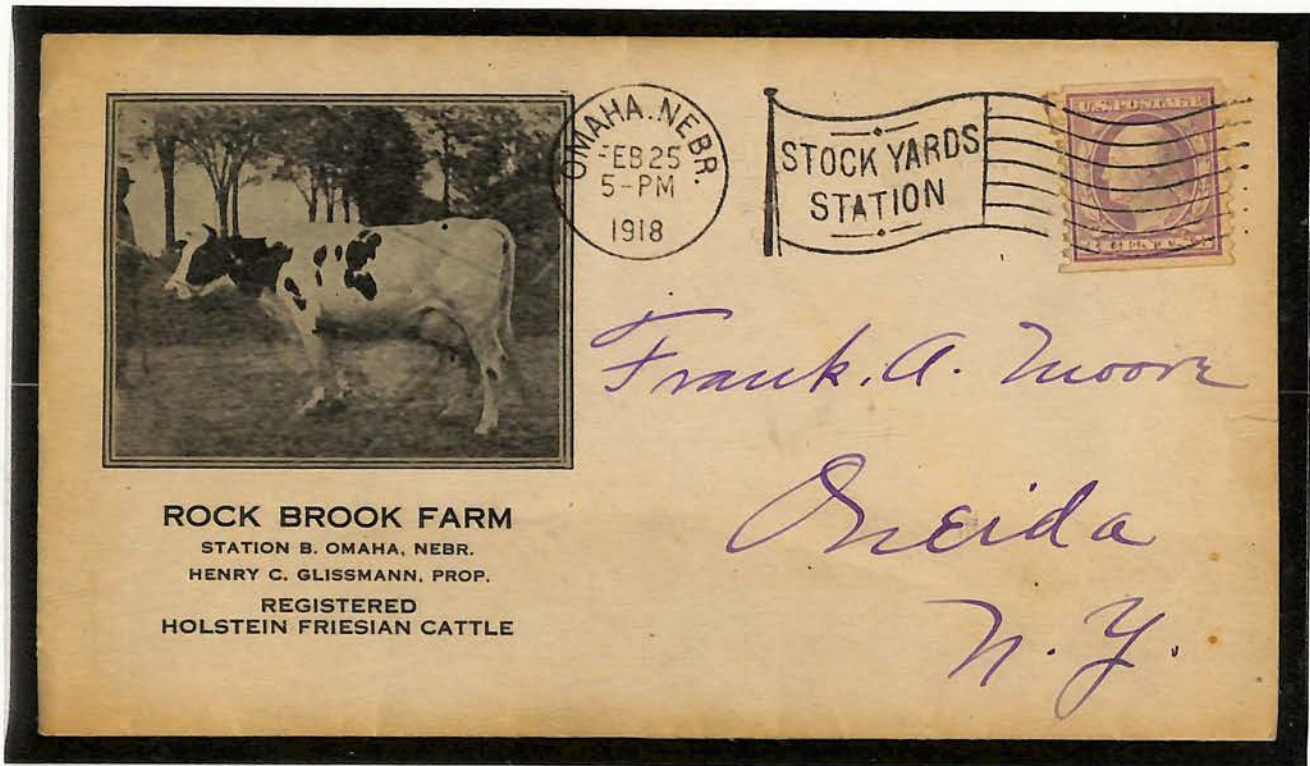 OMAHA. NEBR.
FEB 25
5-PM
1918
STOCK YARDS
STATION
U.S. POSTAGE
3 CENTS 3
Frank. A. Moore
Oneida
N. Y.
ROCK BROOK FARM
STATION B. OMAHA, NEBR.
HENRY C. GLISSMANN, PROP.
REGISTERED
HOLSTEIN FRIESIAN CATTLE